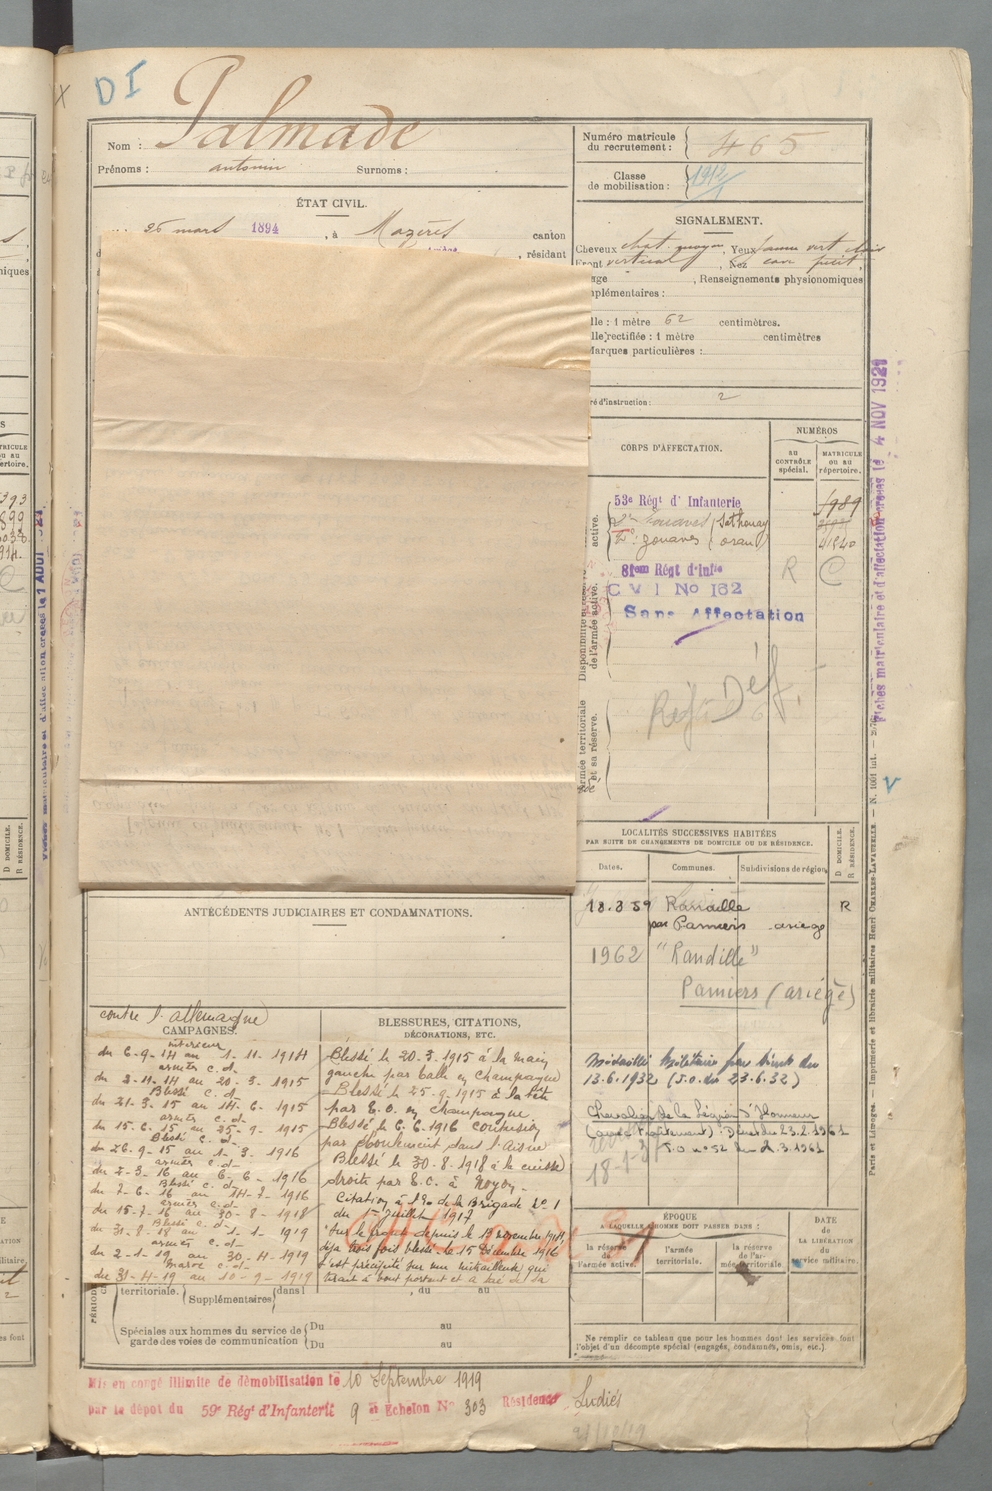 DI
Nom : Palmade
Prénoms : antonin Surnoms :
Numéro matricule
du recrutement : 465
Classe
de mobilisation : 1914
ÉTAT CIVIL.
26 mars 1894, à Mazères canton
, résidant
SIGNALEMENT.
Cheveux chat. moyen, Yeux jaune vert clair
Front vertical, Nez cav petit,
age , Renseignements physionomiques
mplémentaires :
lle : 1 mètre 62 centimètres.
lle rectifiée : 1 mètre centimètres
Marques particulières :
ré d'instruction : 2
CORPS D'AFFECTATION.
NUMÉROS
AU
CONTRÔLE
spécial.
MATRICULE
OU AU
répertoire.
active.
53e Régt d'Infanterie
2e Zouaves (Sathonay
2e zouaves (oran)
81em Régt d'Infie
R C
C V I No 162
Sans Affectation
Disponibilité
de l'armée active.
Réf. Déf.
Armée territoriale
et sa réserve.
LOCALITÉS SUCCESSIVES HABITÉES
PAR SUITE DE CHANGEMENTS DE DOMICILE OU DE RÉSIDENCE.
Dates. Communes. Subdivisions de région
D DOMICILE.
R RÉSIDENCE.
18.3.59 R
par Pamiers ariège
1962 "Randille"
Pamiers (ariège)
ANTÉCÉDENTS JUDICIAIRES ET CONDAMNATIONS.
contre l'allemagne
CAMPAGNES.
intérieur
du 6-9-14 au 1-11-1914
armées c.d.
du 2-11-14 au 20-3-1915
Blessé c.d.
du 21-3-15 au 14-6-1915
armées c.d.
du 15.6.15 au 25-9-1915
Blessé c.d.
du 26.9-15 au 1-3-1916
armées c.d.
du 2-3-16 au 6-6-1916
Blessé c.d.
du 7-6-16 au 14-7-1916
armées c.d.
du 15-7-16 au 30-8-1918
Blessé c.d.
du 31-8-18 au 1-1-1919
armées c.d.
du 2-1-19 au 30-4-1919
Maroc c.d.
du 31-4-19 au 10-9-1919
BLESSURES, CITATIONS,
DÉCORATIONS, ETC.
Blessé le 20-3-1915 à la main
gauche par balle en Champagne
Blessé le 25-9-1915 à la tête
par E.O. en Champagne.
Blessé le 6.6.1916 contusion
par éboulement dans l'Aisne
Blessé le 30-8-1918 à la cuisse
droite par E.C. à Noyon.
Citation à l'o. de la Brigade no 1
du 15 juillet 1917
"Sur le front depuis le 13 novembre 1914,
déjà trois fois blessé le 15 Décembre 1916
s'est précipité sur une mitrailleuse qui
tirait à bout portant et a tué de sa
Médaillé Militaire par décret du
13.6.1932 (J.O. du 23.6.32)
Chevalier de la Légion d'Honneur
(avec traitement) : Décret du 23.2.1961
J.O. no 52 du 2.3.1961
ÉPOQUE
A LAQUELLE L'HOMME DOIT PASSER DANS :
la réserve
de
l'armée active.
l'armée
territoriale.
la réserve
de l'ar-
mée territoriale
DATE
de
LA LIBÉRATION
du
service militaire.
territoriale. Supplémentaires dans l , du au
Spéciales aux hommes du service de
garde des voies de communication
Du au
Du au
Ne remplir ce tableau que pour les hommes dont les services font
l'objet d'un décompte spécial (engagés, condamnés, omis, etc.)
Mis en congé illimité de démobilisation le 10 Septembre 1919
par le dépôt du 59e Régt d'Infanterie 9 è Échelon No 303 Résidence Ludiès
Fiches matriculaire et d'affectation créées le 4 NOV 1921
Paris et Limoges. — Imprimerie et librairie militaires Henri CHARLES-LAVAUZELLE.